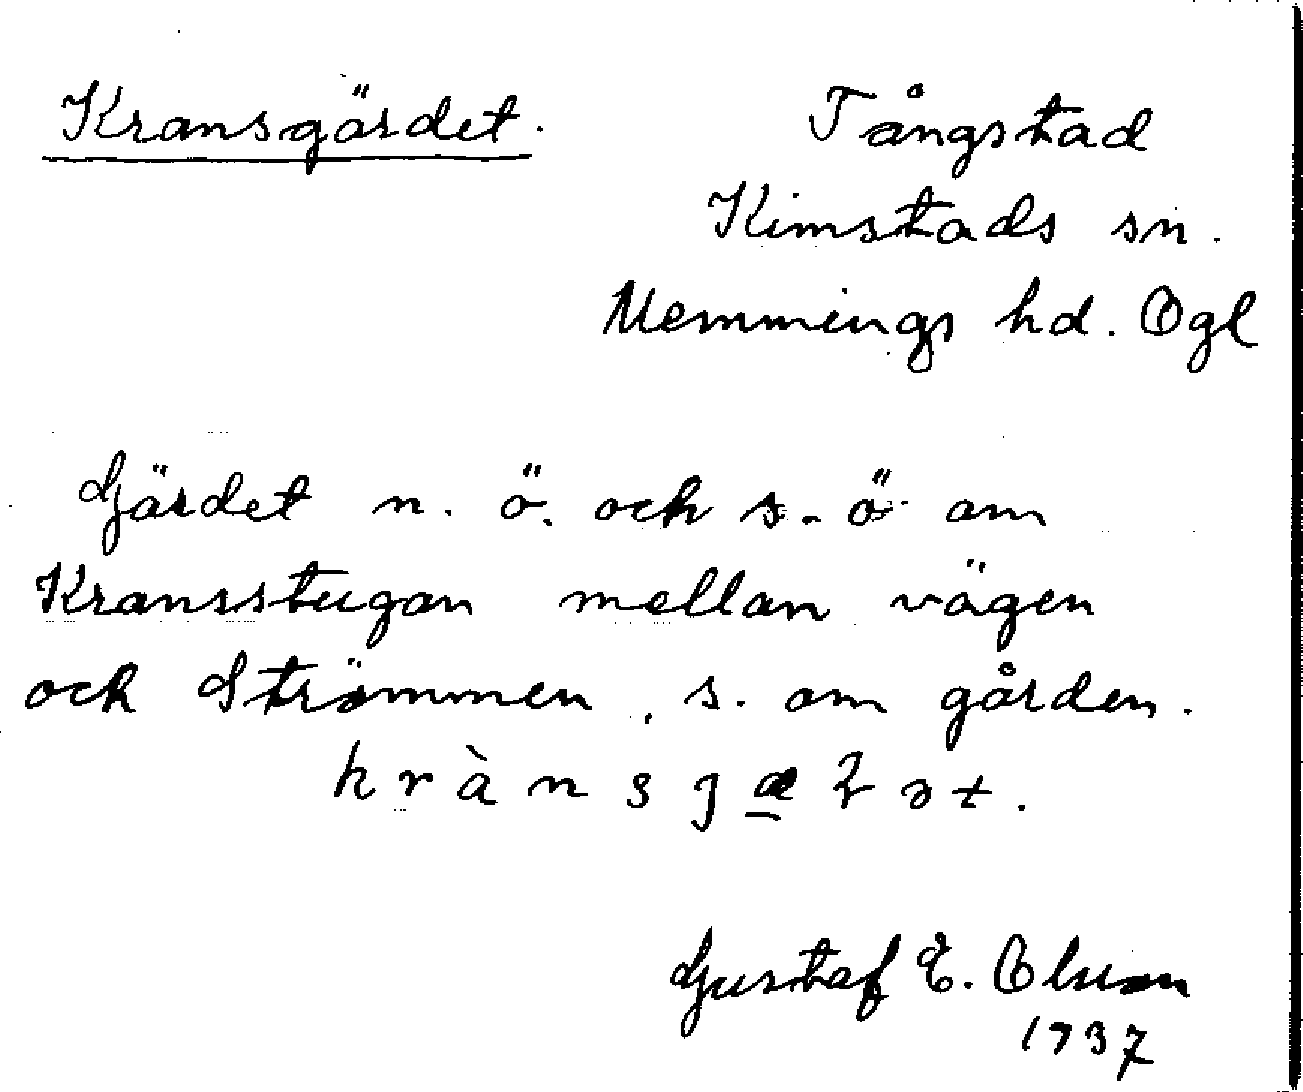 Kransgärdet. Tångstad
Kimstads sn.
Memmings hd. Ögl
Gärdet n. ö. och s. ö om
Kransstugan mellan vägen
och Strömmen, s. om gården.
Gustaf E. Olsson
1937